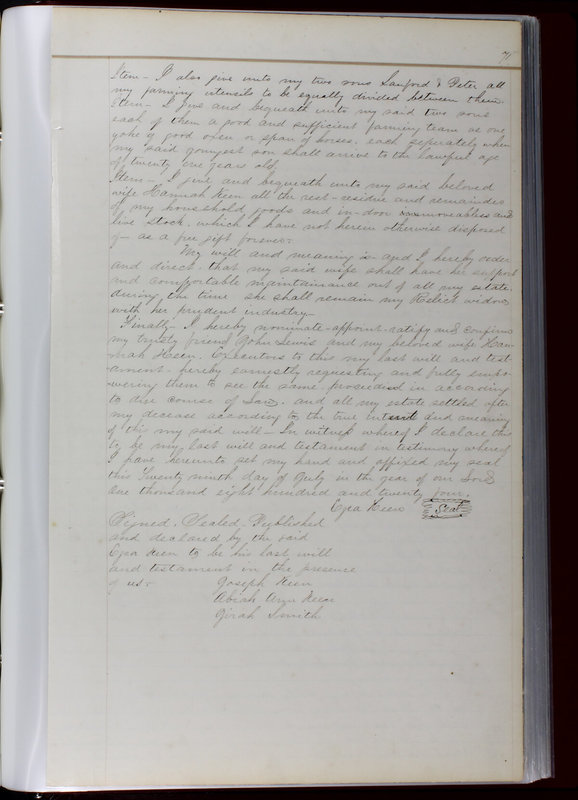 71
Item - I also give unto my two sons Sanford & Peter all
my farming utensils to be equally divided between them.
Item - I give and bequeath unto my said two sons
each of them a good and sufficient farming team as one
yoke of good oxen or span of horses, each seperately when
my said youngest son shall arrive to the lawful age
of twenty one years old.
Item - I give and bequeath unto my said beloved
wife Hannah Keen all the rest - residue and remainder
of my household goods and in-door moveables and
live stock, which I have not herein otherwise disposed
of - as a free gift forever.
My will and meaning is - and I hereby order
and direct - that my said wife shall have her support
and comfortable maintainance out of all my estate
during the time she shall remain my Relict widow
with her prudent industry -
Finally - I hereby nominate - appoint - ratify and confirm
my trusty friend John Lewis and my beloved wife Han-
nah Keen, Executors to this my last will and test-
ament - hereby earnestly requesting and fully empo-
wering them to see the same proscided in according
to due course of Law, and all my estate settled after
my decease according to the true intent and meaning
of this my said will - In witness whereof I declare this
to be my last will and testament in testimony whereof
I have hereunto set my hand and affixed my seal
this Twenty ninth day of July in the year of our Lord
one thousand eight hundred and twenty four.
Ezra Keen Seal
Signed, Sealed, Published
and declared by the said
Ezra Keen to be his last will
and testament in the presence
of us:- Joseph Keen
Abiah Ann Keen
Girah Smith